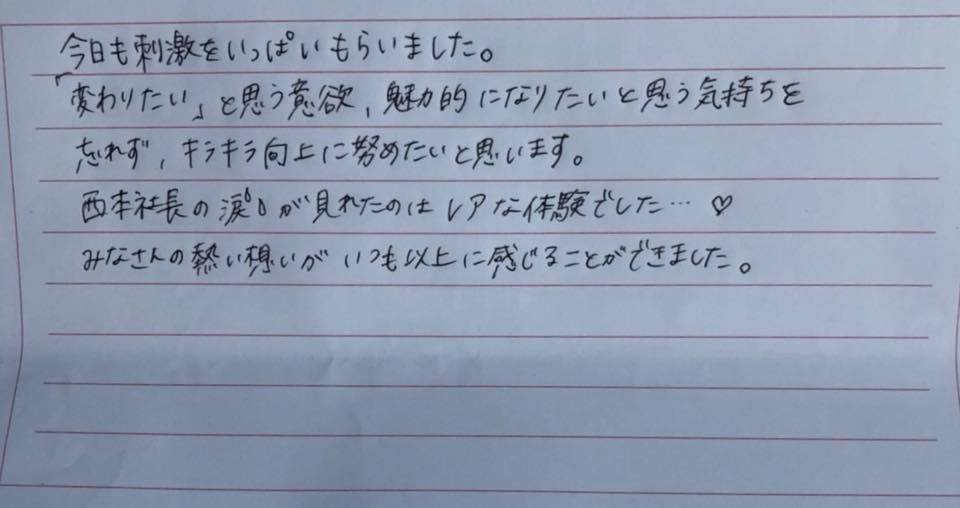 今日も刺激をいっぱいもらいました。
「変わりたい」と思う意欲、魅力的になりたいと思う気持ちを
忘れず、キラキラ向上に努めたいと思います。
西本社長の涙が見れたのはレアな体験でした…♡
みなさんの熱い想いがいつも以上に感じることができました。